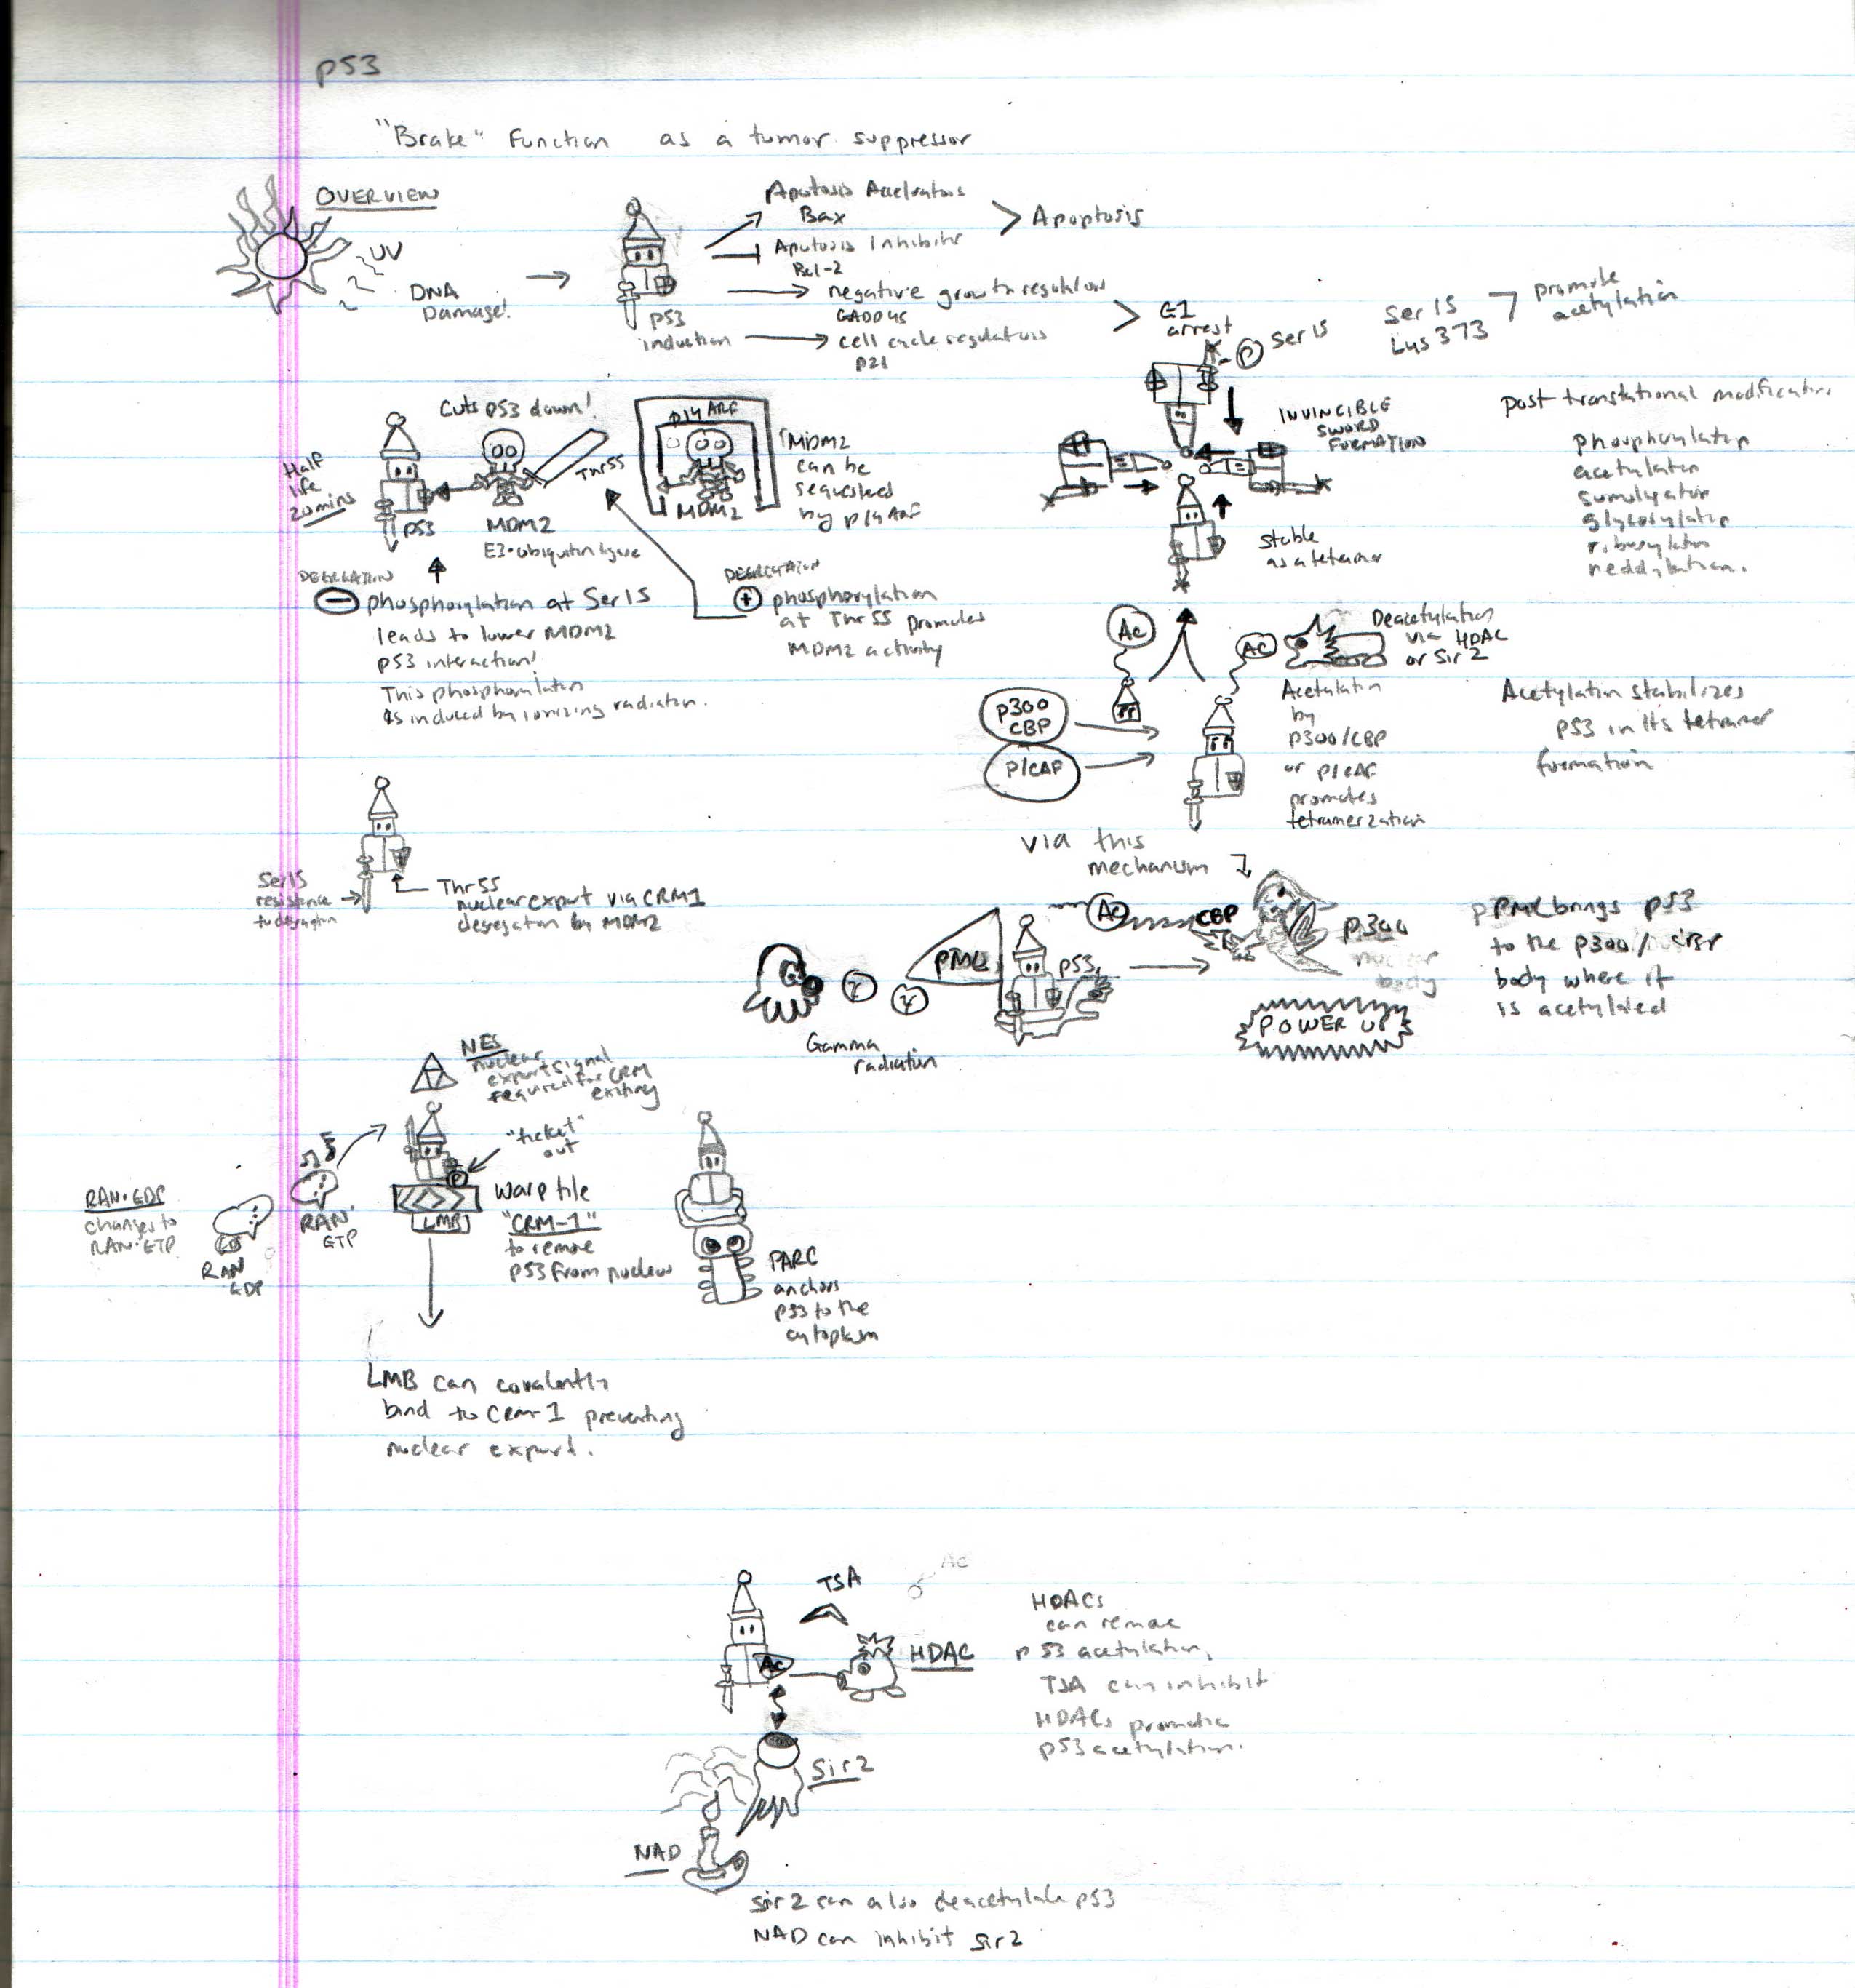 p53
"Brake" Function as a tumor suppressor
OVERVIEW
UV
DNA
Damage!
p53
induction
Apotosis Accelrators
Bax
Apotosis Inhibitor
Bcl-2
> Apoptosis
negative growth regulators
GADD45
cell cycle regulators
p21
> G1
arrest
P Ser 15
Ser 15
Lys 373
promote
acetylation
INVINCIBLE
SWORD
FORMATION
stable
as a tetramer
post translational modification
phosphorylation
acetylation
sumolyation
glycosylation
ribosylation
neddylation.
Half
life
20 mins
p53
Cuts p53 down!
MDM2
E3-ubiquitin ligase
Thr 55
p14 ARF
MDM2
MDM2
can be
sequestered
by p14 ARF
DEGREGATION
⊖ phosphorylation at Ser 15
leads to lower MDM2
p53 interaction!
This phosphorylation
is induced by ionizing radiation.
DEGREGATION
⊕ phosphorylation
at Thr 55 promotes
MDM2 activity
Ac
AC
Deacetylation
via HDAC
or Sir 2
p300
CBP
P/CAF
Acetylation
by
p300/CBP
or P/CAF
promotes
tetramerzation
Acetylation stabilizes
p53 in its tetramer
formation
Ser 15
resistance
to degregation
Thr 55
nuclear export via CRM1
degregation by MDM2
via this
mechanism
Gamma
radiation
γ
γ
PML
p53
Ac
CBP
p300
nuclear
body
POWER UP
PML brings p53
to the p300/CBP
body where it
is acetylated
NES
nuclear
export signal
required for CRM
exiting
"ticket"
out
P
RAN·GDP
changes to
RAN·GTP
RAN
GDP
RAN·
GTP
LMB
warp tile
"CRM-1"
to remove
p53 from nucleus
PARC
anchors
p53 to the
cytoplasm
LMB can covalently
bind to CRM-1 preventing
nuclear export.
TSA
Ac
Ac
HDAC
HDACs
can remove
p53 acetylation,
TSA can inhibit
HDACs promotic
p53 acetylation.
Sir 2
NAD
Sir 2 can also deacetylate p53
NAD can inhibit Sir 2